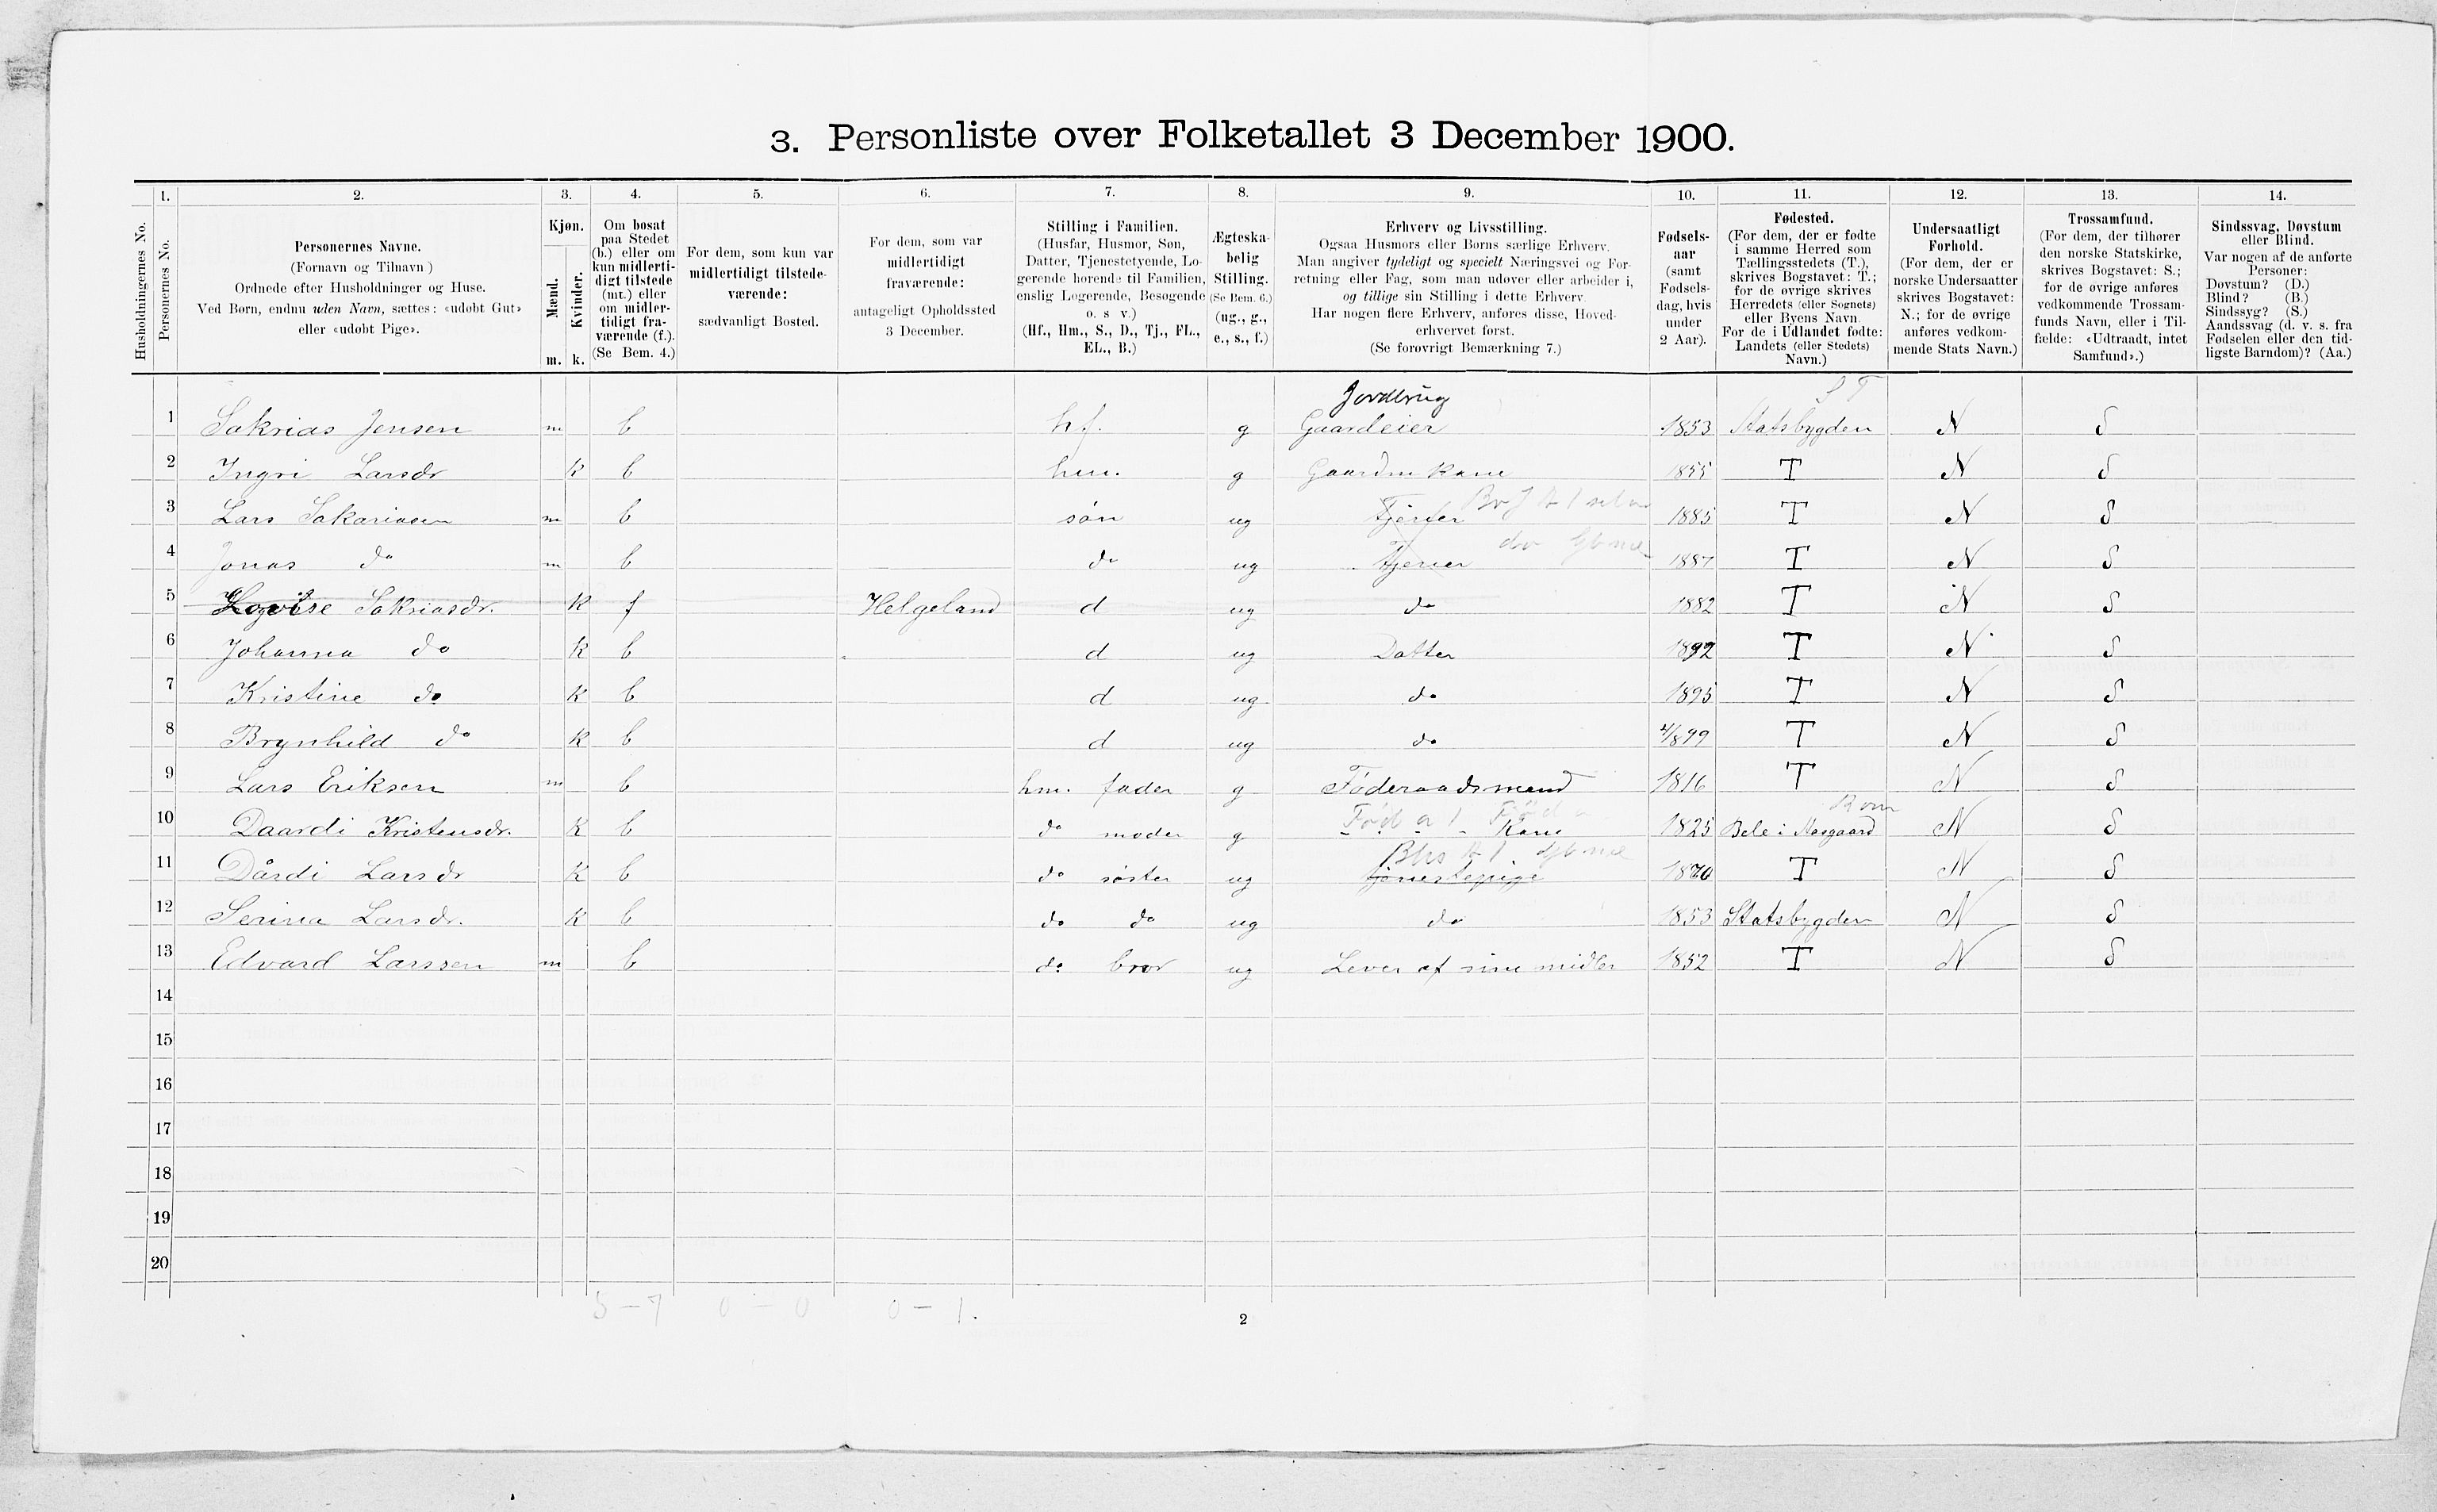 3. Personliste over Folketallet 3 December 1900.
1. 2. 3. 4. 5. 6. 7. 8. 9. 10. 11. 12. 13. 14.
Husholdningernes No.
Personernes No.
Personernes Navne.
(Fornavn og Tilnavn)
Ordnede efter Husholdninger og Huse.
Ved Børn, endnu uden Navn, sættes: «udøbt Gut»
eller «udøbt Pige».
Kjøn.
Mænd.
Kvinder.
m. k.
Om bosat
paa Stedet
(b.) eller om
kun midlerti-
digt tilstede
(mt.) eller
om midler-
tidigt fra-
værende (f.).
(Se Bem. 4.)
For dem, som kun var
midlertidigt tilstede-
værende:
sædvanligt Bosted.
For dem, som var
midlertidigt
fraværende:
antageligt Opholdssted
3 December.
Stilling i Familien.
(Husfar, Husmor, Søn,
Datter, Tjenestetyende, Lo-
gerende hørende til Familien,
enslig Logerende, Besøgende
o. s v.)
(Hf., Hm., S., D., Tj., FL.,
EL., B.)
Ægteska-
belig
Stilling.
(Se Bem. 6.)
(ug., g.,
e., s., f.)
Erhverv og Livsstilling.
Ogsaa Husmors eller Børns særlige Erhverv.
Man angiver tydeligt og specielt Næringsvei og For-
retning eller Fag, som man udøver eller arbeider i,
og tillige sin Stilling i dette Erhverv.
Har nogen flere Erhverv, anføres disse, Hoved-
erhvervet først.
(Se forøvrigt Bemærkning 7.)
Fødsels-
aar
(samt
Fødsels-
dag, hvis
under
2 Aar).
Fødested.
(For dem, der er fødte
i samme Herred som
Tællingsstedets (T.),
skrives Bogstavet: T.;
for de øvrige skrives
Herredets (eller Sognets)
eller Byens Navn.
For de i Udlandet fødte:
Landets (eller Stedets)
Navn.)
Undersaatligt
Forhold.
(For dem, der er
norske Undersaatter
skrives Bogstavet:
N.; for de øvrige
anføres vedkom-
mende Stats Navn.)
Trossamfund.
(For dem, der tilhører
den norske Statskirke,
skrives Bogstavet: S.;
for de øvrige anføres
vedkommende Trossam-
funds Navn, eller i Til-
fælde: «Udtraadt, intet
Samfund».)
Sindssvag, Døvstum
eller Blind.
Var nogen af de anførte
Personer:
Døvstum? (D.)
Blind? (B.)
Sindssyg? (S.)
Aandssvag (d. v. s. fra
Fødselen eller den tid-
ligste Barndom)? (Aa.)
Jordbrug S T
1 Sakrias Jensen m b hf. g Gaardeier 1853 Statsbygden N S
2 Ingri Larsdr k b hm. g Gaardm kone 1855 T N S
3 Lars Sakariasen m b søn ug Tjener 1885 T N S
4 Jonas do m b do ug Tjener 1887 T N S
5 Lovise Sakriasdr. k f Helgeland d ug do 1882 T N S
6 Johanna do k b d ug Datter 1892 T N S
7 Kristine do k b d ug do 1895 T N S
8 Brynhild do k b d ug do 4/8 99 T N S
9 Lars Eriksen m b hm. fader g Føderaadsmand 1816 T N S
10 Daardi Kristensdr. k b do moder g Kone 1825 N S
11 Dårdi Larsdr k b do søster ug tjenestepige 1870 T N S
12 Serina Larsdr. k b do do ug do 1853 Statsbygden N S
13 Edvard Larssen m b do bror ug Lever af sine midler 1852 T N S
14
15
16
17
18
19
20
5 – 7 0 – 0 0 – 1.
2